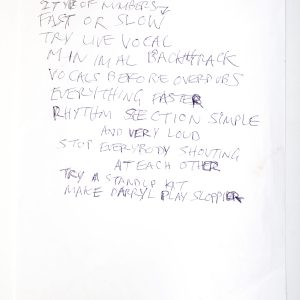 2 TYPE OF NUMBERS
FAST OR SLOW
TRY LIVE VOCAL
MINIMAL BACKTRACK
VOCALS BEFORE OVERDUBS
EVERYTHING FASTER
RHYTHM SECTION SIMPLE
AND VERY LOUD
STOP EVERYBODY SHOUTING
AT EACH OTHER
TRY A STANDUP KIT
MAKE DARRYL PLAY SLOPPIER